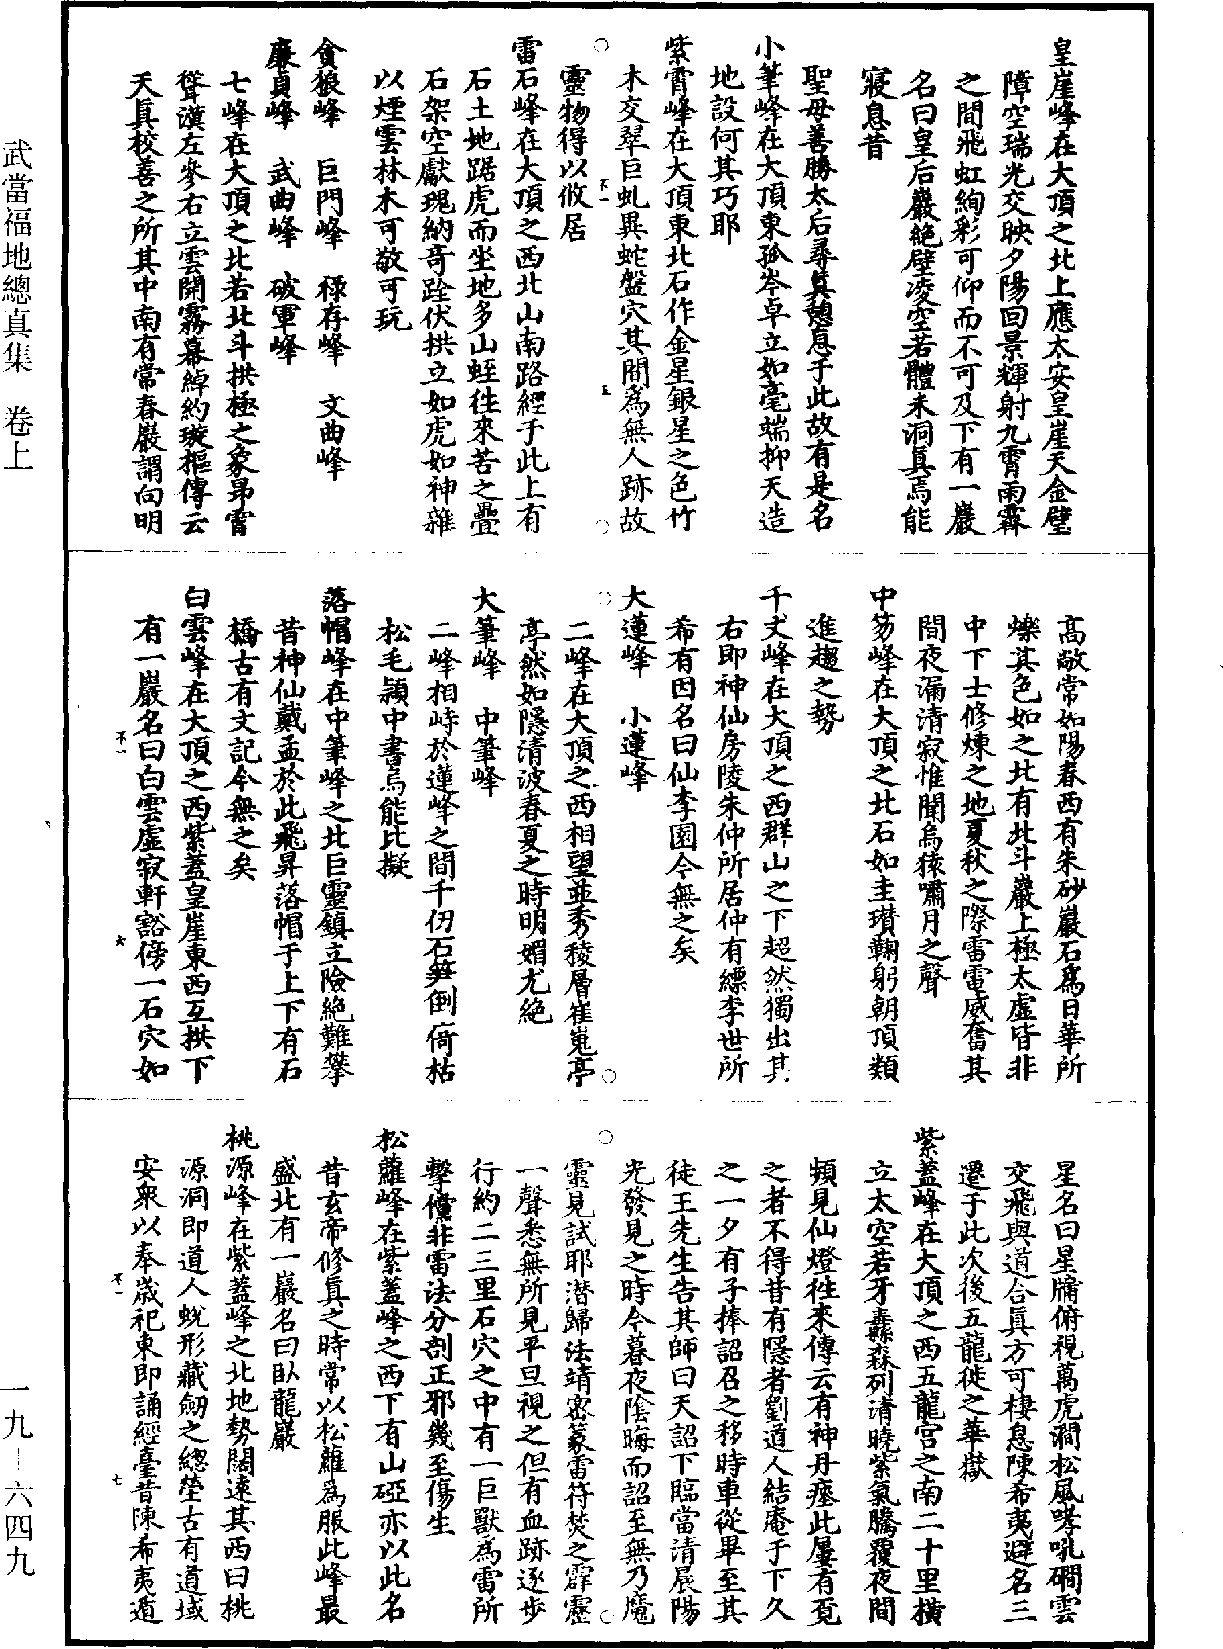 武當福地總真集　卷上
皇崖峰在大頂之北上應太安皇崖天金壁
障空瑞光交映夕陽回景輝射九霄雨霽
之間飛虹絢彩可仰而不可及下有一巖
名曰皇后巖絕壁凌空若體未洞真焉能
寢息昔
聖母善勝太后尋真憩息于此故有是名
小筆峰在大頂東孤岑卓立如毫端抑天造
地設何其巧耶
紫霄峰在大頂東北石作金星銀星之色竹
木交翠巨虬異蛇盤穴其間為無人跡故
靈物得以攸居
雷石峰在大頂之西北山南路經于此上有
石土地踞虎而坐地多山蛭往來苦之疊
石架空獻瑰納奇跧伏拱立如虎如神雜
以煙雲林木可敬可玩
貪狼峰　巨門峰　祿存峰　文曲峰
廉貞峰　武曲峰　破軍峰
七峰在大頂之北若北斗拱極之象昂霄
聳漢左參右立雲開霧幕綽約璇樞傳云
天真校善之所其中南有常春巖謂向明
高敞常如陽春西有朱砂巖石為日華所
爍其色如之北有北斗巖上極太虛皆非
中下士修煉之地夏秋之際雷電威奮其
間夜漏清寂惟聞烏猿嘯月之聲
中笏峰在大頂之北石如圭瓚鞠躬朝頂類
進趨之勢
千丈峰在大頂之西群山之下超然獨出其
右即神仙房陵朱仲所居仲有縹李世所
希有因名曰仙李園今無之矣
大蓮峰　小蓮峰
二峰在大頂之西相望並秀稜層崔嵬亭
亭然如隱清波春夏之時明媚尤絕
大筆峰　中筆峰
二峰相峙於蓮峰之間千仞石筍倒倚枯
松毛穎中書烏能比擬
落帽峰在中筆峰之北巨靈鎮立險絕難攀
昔神仙戴孟於此飛昇落帽于上下有石
橋古有文記今無之矣
白雲峰在大頂之西紫蓋皇崖東西互拱下
有一巖名曰白雲虛寂軒豁傍一石穴如
星名曰星牖俯視萬虎澗松風哮吼磵雲
交飛與道合真方可棲息陳希夷避名三
遷于此次後五龍徙之華嶽
紫蓋峰在大頂之西五龍宮之南二十里橫
立太空若牙纛森列清曉紫氣騰覆夜間
頻見仙燈往來傳云有神丹瘞此屢有覓
之者不得昔有隱者劉道人結庵于下久
之一夕有子捧詔召之移時車從畢至其
徒王先生告其師曰天詔下臨當清晨陽
光發見之時今暮夜陰晦而詔至無乃魔
靈見試耶潛歸法靖密篆雷符焚之霹靂
一聲悉無所見平旦視之但有血跡逐步
行約二三里石穴之中有一巨獸為雷所
擊儻非雷法分剖正邪幾至傷生
松蘿峰在紫蓋峰之西下有山砬亦以此名
昔玄帝修真之時常以松蘿為服此峰最
盛北有一巖名曰臥龍巖
桃源峰在紫蓋峰之北地勢闊遠其西曰桃
源洞即道人蛻形藏劒之總塋古有道域
安眾以奉歲祀東即誦經臺昔陳希夷遁
一九－六四九